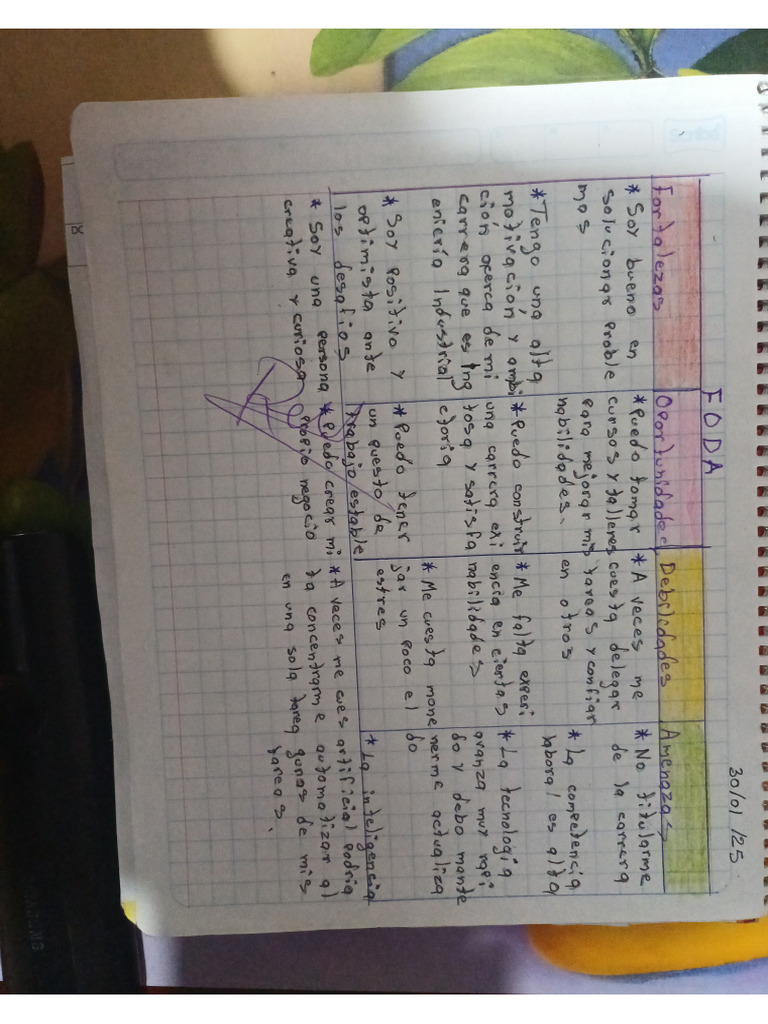 30/01/25
FODA
Fortalezas
* Soy bueno en
solucionar proble
mas
* Tengo una alta
motivación y ambi
ción acerca de mi
carrera que es Ing
eniería Industrial
* Soy positivo y
optimista ante
los desafios
* Soy una persona
creativa y curiosa
Oportunidades
* Puedo tomar
cursos y talleres
para mejorar mis
habilidades.
* Puedo construir
una carrera exi
tosa y satisfa
ctoria
* Puedo tener
un puesto de
trabajo estable
* Puedo crear mi
propio negocio
Debilidades
* A veces me
cuesta delegar
tareas y confiar
en otros
* Me falta experi
encia en ciertas
habilidades
* Me cuesta mane
jar un poco el
estres
* A veces me cues
ta concentrarme
en una sola tarea
Amenazas
* No titularme
de la carrera
* La competencia
laboral es alta
* La tecnologia
avanza muy rapi
do y debo mante
nerme actualiza
do
* La inteligencia
artificial podria
automatizar al
gunas de mis
tareas.